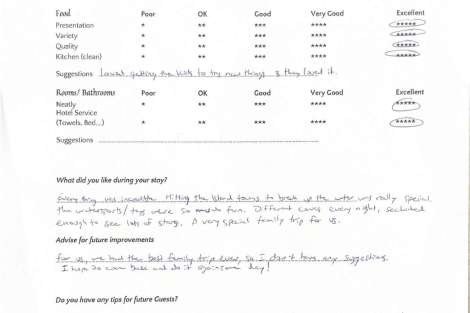 Food Poor OK Good Very Good Excellent
Presentation * ** *** **** *****
Variety * ** *** **** *****
Quality * ** *** **** *****
Kitchen (clean) * ** *** **** *****
Suggestions Loved getting the kids to try new things & they loved it.
Rooms/ Bathrooms Poor OK Good Very Good Excellent
Neatly * ** *** **** *****
Hotel Service
(Towels, Bed...) * ** *** **** *****
Suggestions
What did you like during your stay?
Everything was incredible. Hitting the island towns to break up the water was really special
The watersports/toys were so fun. Different caves every night, secluded
enough to see lots of stars. A very special family trip for us.
Advise for future improvements
For us, we had the best family trip ever, so I don't have any suggestions.
I hope to come back and do it again some day!
Do you have any tips for future Guests?